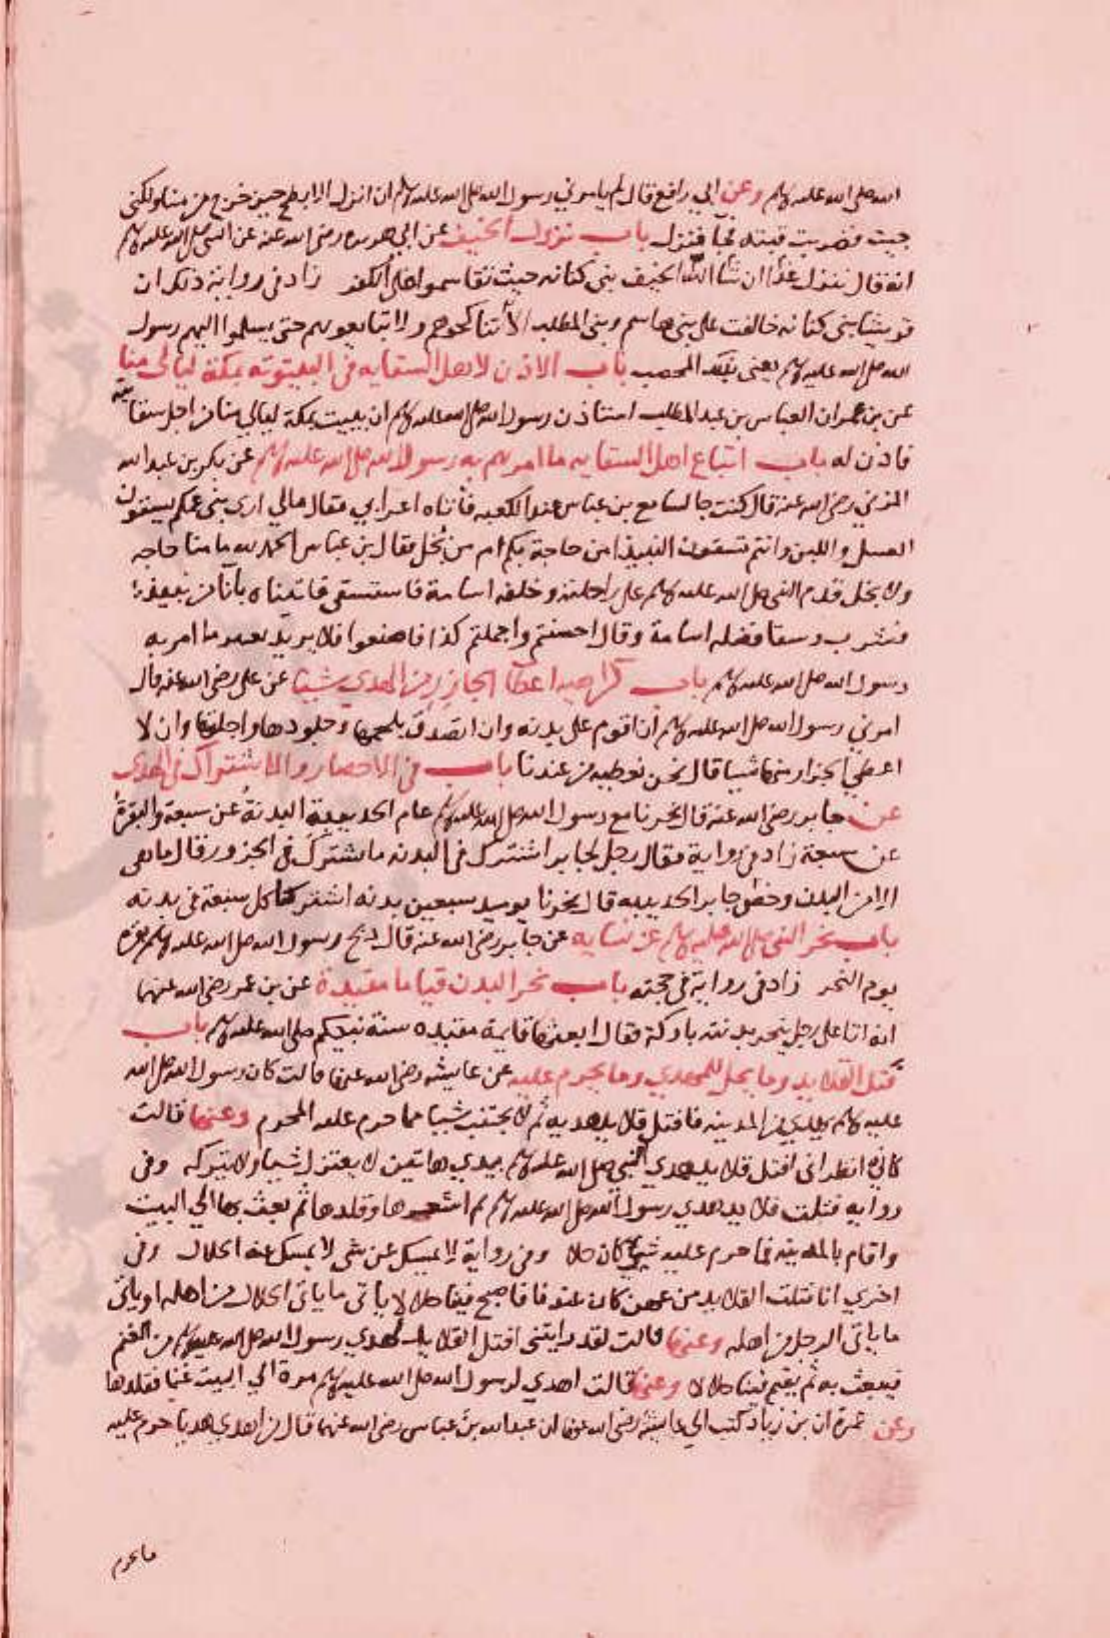 الله صلى الله عليه وسلم وعن ابي رافع قال لم يامرني رسول الله صلى الله عليه وسلم ان انزل الابطح حين خرج من منا ولكني
جيت فضربت قبته فجا فنزل باب نزول الخيف عن ابي هريرة رضي الله عنه عن النبي صلى الله عليه وسلم
انه قال ننزل غدا ان شا الله بخيف بني كنانه حيث تقاسموا على الكفر زاد في رواية ذلك ان
قريشا بني كنانه خالفت على بني هاشم وبني المطلب الا تناكحوهم ولا تبايعوهم حتى يسلموا اليهم رسول
الله صلى الله عليه وسلم يعني بذلك المحصب باب الاذن لاهل السقايه في البيتوته بمكة ليالي منا
عن بن عمر ان العباس بن عبد المطلب استاذن رسول الله صلى الله عليه وسلم ان يبيت بمكة ليالي منا من اجل سقايته
فاذن له باب اتباع اهل السقايه ما امرهم به رسول الله صلى الله عليه وسلم عن بكر بن عبد الله
المزني رضي الله عنه قال كنت جالسا مع بن عباس عند الكعبه فاتاه اعرابي فقال مالي ارى بني عمكم يسقون
العسل واللبن وانتم تسقون النبيذ امن حاجة بكم ام من بخل فقال بن عباس الحمد لله ما بنا حاجه
ولا بخل قدم النبي صلى الله عليه وسلم على راحلته وخلفه اسامة فاستسقى فاتيناه بانا من نبيذ
فشرب وسقا فضله اسامة وقال احسنتم واجملتم كذا فاصنعوا فلا يريد تغيير ما امر به
رسول الله صلى الله عليه وسلم باب كراهيه اعطا الجازر من الهدي شيا عن علي رضي الله عنه قال
امرني رسول الله صلى الله عليه وسلم ان اقوم على بدنه وان اتصدق بلحمها وجلودها واجلتها وان لا
اعطي الجزار منها شيا قال نحن نعطيه من عندنا باب في الاحصار والاشتراك في الهدي
عن جابر رضي الله عنه قال نحرنا مع رسول الله صلى الله عليه وسلم عام الحديبية البدنة عن سبعة والبقرة
عن سبعة زاد في رواية فقال رجل لجابر اشترك في البدنه ما يشترك في الجزور قال ما هي
الا من البدن وحضر جابر الحديبيه قال نحرنا يوميد سبعين بدنه اشتركنا كل سبعة في بدنه
باب نحر النبي صلى الله عليه وسلم عن نسايه عن جابر رضي الله عنه قال ذبح رسول الله صلى الله عليه وسلم بقرة
يوم النحر زاد في رواية في حجته باب نحر البدن قياما مقيدة عن بن عمر رضي الله عنهما
انه اتا على رجل ينحر بدنته باركة فقال ابعثها قايمة مقيده سنة نبيكم صلى الله عليه وسلم باب
فتل القلايد وما يحل للمهدي وما يحرم عليه عن عايشه رضي الله عنها قالت كان رسول الله صلى الله
عليه وسلم يهدي من المدينه فافتل قلايد هديه ثم لا يجتنب شيا مما حرم على المحرم وعنها قالت
كاني انظر اني افتل قلايد هدي النبي صلى الله عليه وسلم بيدي هاتين لا يعتزل شيا ولا يتركه وفي
رواية فتلت قلايد هدي رسول الله صلى الله عليه وسلم ثم اشعرها وقلدها ثم بعث بها الى البيت
واقام بالمدينه فما حرم عليه شي كان حلا وفي رواية لا يمسك عن شي لا يمسك عنه الحلال وفي
اخري انا فتلت القلايد من عهن كان عندنا فاصبح فينا حلالا ياتي ما ياتي الحلال من اهله او ياتي
ما ياتي الرجل من اهله وعنها قالت لقد رايتني افتل القلايد لهدي رسول الله صلى الله عليه وسلم من الغنم
فيبعث به ثم يقيم فينا حلالا وعنها قالت اهدي رسول الله صلى الله عليه وسلم مرة الي البيت غنما فقلدها
وعن عمرة ان بن زياد كتب الي عايشة رضي الله عنها ان عبد الله بن عباس رضي الله عنهما قال من اهدي هديا حرم عليه
ما يحرم